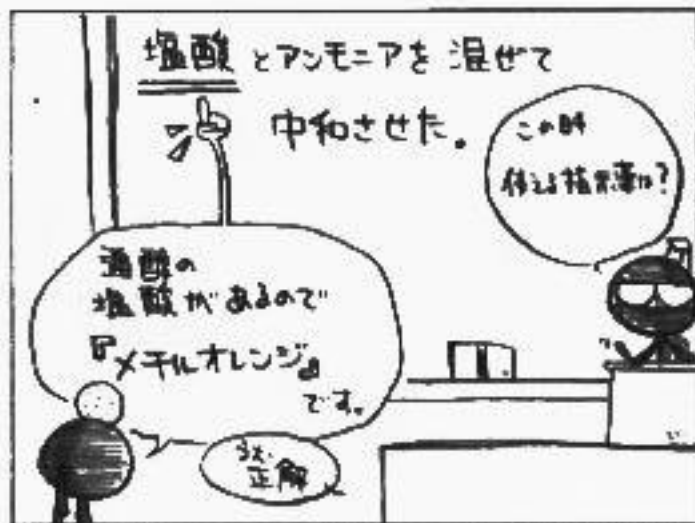 塩酸とアンモニアを混ぜて
中和させた。
この時
使える指示薬は?
強酸の
塩酸があるので
『メチルオレンジ』
です。
正解